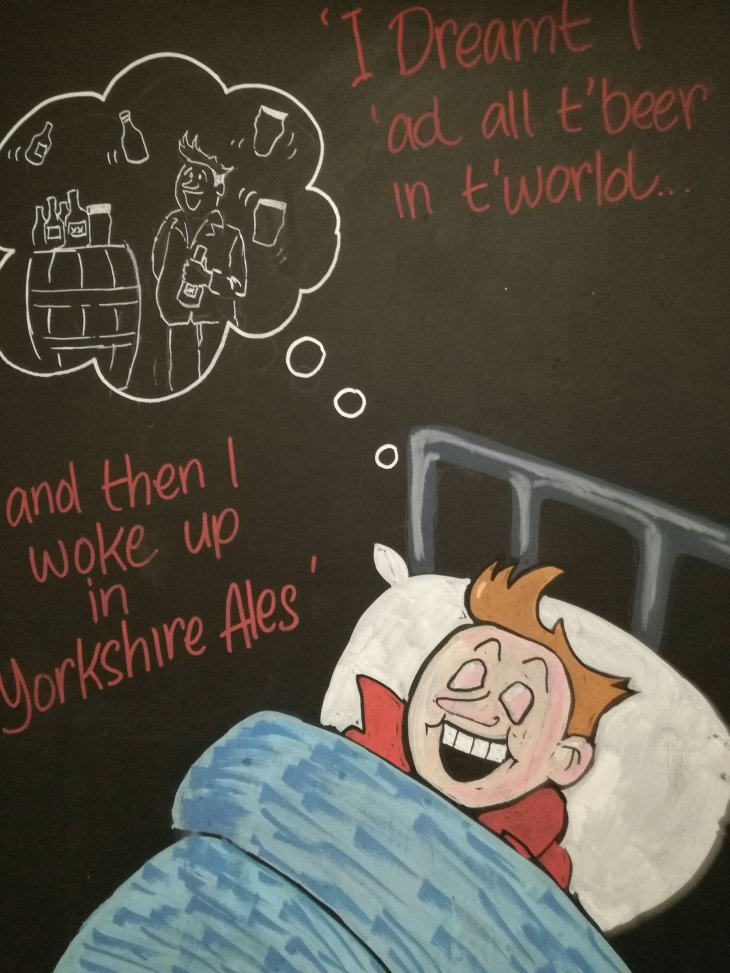 'I Dreamt I
'ad all t'beer
in t'world...
and then I
woke up
in
Yorkshire Ales'
xx
xx